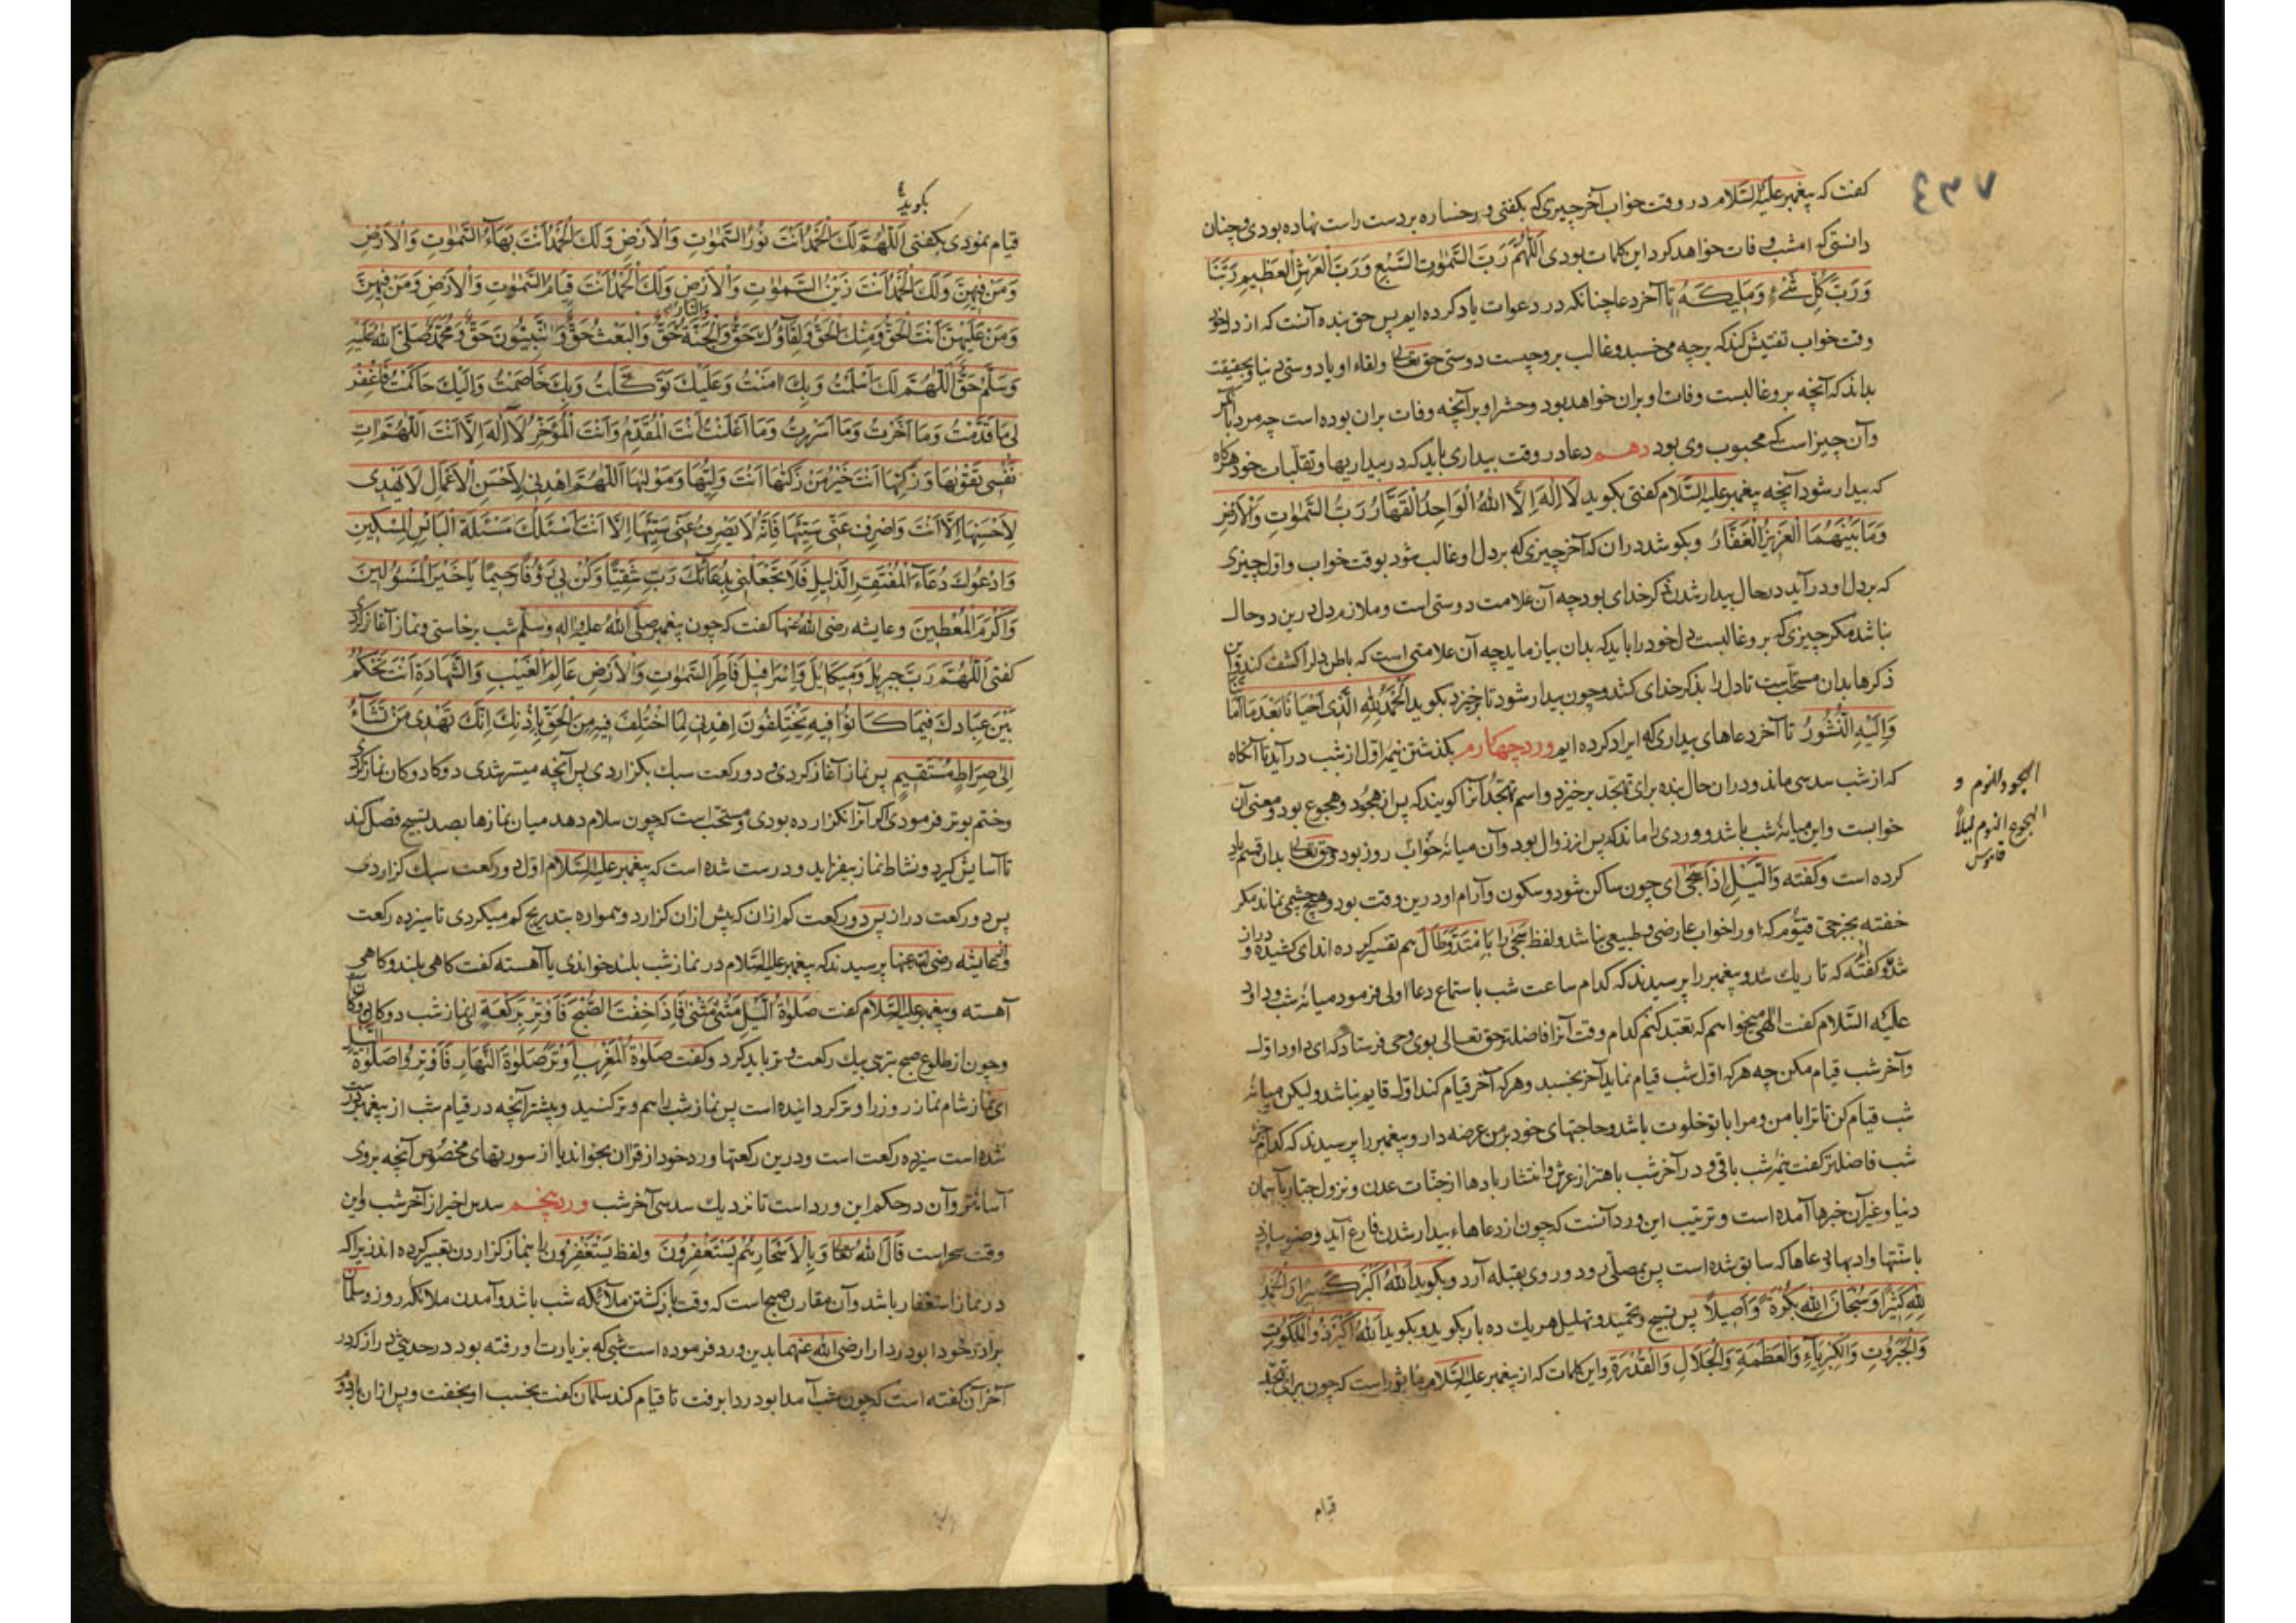 ۷۳٤
گفت که پیغمبر علیه السّلام در وقت خواب آخر چیزی که بگفتی و رخساره بر دست راست نهاده بودی و چنان
دانستی که امشب وفات خواهد کرد این کلمات بودی اَللّٰهُمَّ رَبَّ السَّمٰوٰتِ السَّبْعِ وَرَبَّ الْعَرْشِ الْعَظِیمِ رَبَّنَا
وَرَبَّ کُلِّ شَیْءٍ وَمَلِیکَهُ تا آخر دعا چنانکه در دعوات یاد کرده ایم پس حق بنده آنست که از دل خود
وقت خواب تفتیش کند که بر چه می خسبد و غالب بر و چیست دوستی حق تعالی ولقاء او یا دوستی دنیا و بحقیقت
بداند که آنچه بر و غالبست وفات او بران خواهد بود و حشر او بر آنچه وفات بران بوده است چه مرد با
وآن چیز است که محبوب وی بود دهم دعا در وقت بیداری باید که در بیداریها و تقلبات خود هرگاه
که بیدار شود آنچه پیغمبر علیه السّلام گفتی بگوید لَا اِلٰهَ اِلَّا اللهُ الْوَاحِدُ الْقَهَّارُ رَبُّ السَّمٰوٰتِ وَالْاَرْضِ
وَمَا بَیْنَهُمَا الْعَزِیزُ الْغَفَّارُ وبکوشد دران که آخر چیزی که بر دل او غالب شود بوقت خواب و اول چیزی
که بر دل او در آید در حال بیدار شدن ذکر خدای بود چه آن علامت دوستی است و ملازم دل درین دو حال
نباشد مگر چیزی که بر و غالبست دل خود را باید که بدان بیازماید چه آن علامتی است که باطن دل را کشف کند و این
ذکرها بدان مستحبّست تا دل را بذکر خدای کشد و چون بیدار شود تا برخیزد بگوید اَلْحَمْدُ لِلّٰهِ الَّذِی اَحْیَانَا بَعْدَ مَا اَمَاتَنَا
وَاِلَیْهِ النُّشُورُ تا آخر دعاهای بیداری که ایراد کرده ایم ورد چهارم بگذشتن نیمهٔ اول از شب در آید تا آنگاه
که از شب سدسی ماند و دران حال بنده برای تهجّد برخیزد و اسم تهجّد آنرا گویند که پس از هجود و هجوع بود و معنی آن
خوابست و این میانهٔ شب باشد و وردی را ماند که پس از زوال بود و آن میانهٔ خواب روز بود و حق تعالی بدان قسم یاد
کرده است و گفته وَالَّیْلِ اِذَا سَجٰی ای چون ساکن شود و سکون و آرام او درین وقت بود و هیچ چشمی نماند مگر
خفته بجز حیّ قیّوم که او را خواب عارضی و طبیعی نباشد و لفظ سَجٰی را بامتدّ وطال هم تفسیر کرده اند ای کشیده و دراز
شد و گفته اند که تاریك شد و پیغمبر را پرسیدند که کدام ساعت شب باستماع دعا اولی فرمود میانهٔ شب و داود
علیه السّلام گفت الهی میخواهم که تعبّد کنم کدام وقت آنرا فاضلتر حق تعالی بوی وحی فرستاد که ای داود اول
وآخر شب قیام مکن چه هر که اوّل شب قیام نماید آخر بخسبد و هر که آخر قیام کند اوّل قایم نباشد ولیکن میانهٔ
شب قیام کن تا ترا با من و مرا با تو خلوت باشد و حاجتهای خود بر من عرضه دار و پیغمبر را پرسیدند که کدام جزء
شب فاضلتر گفت نیمهٔ شب باقی و در آخر شب باهتزاز عرش و انتشار بادها از جنّات عدن و نزول جبّار بآسمان
دنیا و غیر آن خبرها آمده است و ترتیب این ورد آنست که چون از دعاهاء بیدار شدن فارغ آید وضو سازد
باسنّتها و ادبها و دعاها که سابق شده است پس بمصلّی رود و روی بقبله آرد و بگوید اَللهُ اَکْبَرُ کَبِیرًا وَالْحَمْدُ
لِلّٰهِ کَثِیرًا وَسُبْحَانَ اللهِ بُکْرَةً وَاَصِیلًا پس تسبیح و تحمید و تهلیل هر یك ده بار بگوید و بگوید اَللهُ اَکْبَرُ ذُو الْمَلَکُوتِ
وَالْجَبَرُوتِ وَالْکِبْرِیَاءِ وَالْعَظَمَةِ وَالْجَلَالِ وَالْقُدْرَةِ و این کلمات که از پیغمبر علیه السّلام ماثور است که چون برای تهجّد
الهجود النوم و
الهجوع النوم لیلاً
قاموس
قیام
بگوید
قیام نمودی بگفتی اَللّٰهُمَّ لَكَ الْحَمْدُ اَنْتَ نُورُ السَّمٰوٰتِ وَالْاَرْضِ وَلَكَ الْحَمْدُ اَنْتَ بَهَآءُ السَّمٰوٰتِ وَالْاَرْضِ
وَمَنْ فِیهِنَّ وَلَكَ الْحَمْدُ اَنْتَ زَیْنُ السَّمٰوٰتِ وَالْاَرْضِ وَلَكَ الْحَمْدُ اَنْتَ قِیَامُ السَّمٰوٰتِ وَالْاَرْضِ وَمَنْ فِیهِنَّ
وَمَنْ عَلَیْهِنَّ اَنْتَ الْحَقُّ وَمِنْكَ الْحَقُّ وَلِقَاؤُكَ حَقٌّ وَالْجَنَّةُ حَقٌّ وَالنَّارُ حَقٌّ وَالْبَعْثُ حَقٌّ وَالنَّبِیُّونَ حَقٌّ وَمُحَمَّدٌ صَلَّی اللهُ عَلَیْهِ
وَسَلَّمَ حَقٌّ اَللّٰهُمَّ لَكَ اَسْلَمْتُ وَبِكَ اٰمَنْتُ وَعَلَیْكَ تَوَکَّلْتُ وَبِكَ خَاصَمْتُ وَاِلَیْكَ حَاکَمْتُ فَاغْفِرْ
لِی مَا قَدَّمْتُ وَمَا اَخَّرْتُ وَمَا اَسْرَرْتُ وَمَا اَعْلَنْتُ اَنْتَ الْمُقَدِّمُ وَاَنْتَ الْمُؤَخِّرُ لَا اِلٰهَ اِلَّا اَنْتَ اَللّٰهُمَّ اٰتِ
نَفْسِی تَقْوٰیهَا وَزَکِّهَا اَنْتَ خَیْرُ مَنْ زَکّٰیهَا اَنْتَ وَلِیُّهَا وَمَوْلٰیهَا اَللّٰهُمَّ اهْدِنِی لِاَحْسَنِ الْاَعْمَالِ لَا یَهْدِی
لِاَحْسَنِهَا اِلَّا اَنْتَ وَاصْرِفْ عَنِّی سَیِّئَهَا فَاِنَّهُ لَا یَصْرِفُ عَنِّی سَیِّئَهَا اِلَّا اَنْتَ اَسْئَلُكَ مَسْئَلَةَ الْبَائِسِ الْمِسْکِینِ
وَاَدْعُوكَ دُعَآءَ الْمُفْتَقِرِ الذَّلِیلِ فَلَا تَجْعَلْنِی بِدُعَائِكَ رَبِّ شَقِیًّا وَکُنْ بِی رَؤُفًا رَحِیمًا یَا خَیْرَ الْمَسْؤُلِینَ
وَاَکْرَمَ الْمُعْطِینَ وعایشه رضی الله عنها گفت که چون پیغمبر صلّی الله علیه واله وسلّم شب برخاستی و نماز آغاز کردی
گفتی اَللّٰهُمَّ رَبَّ جِبْرِیلَ وَمِیکَایِلَ وَاِسْرَافِیلَ فَاطِرَ السَّمٰوٰتِ وَالْاَرْضِ عَالِمَ الْغَیْبِ وَالشَّهَادَةِ اَنْتَ تَحْکُمُ
بَیْنَ عِبَادِكَ فِیمَا کَانُوا فِیهِ یَخْتَلِفُونَ اِهْدِنِی لِمَا اخْتُلِفَ فِیهِ مِنَ الْحَقِّ بِاِذْنِكَ اِنَّكَ تَهْدِی مَنْ تَشَآءُ
اِلٰی صِرَاطٍ مُسْتَقِیمٍ پس نماز آغاز کردی و دو رکعت سبك بگزاردی پس آنچه میسّر شدی دوگان دوگان نماز کردی
وختم بوتر فرمودی اگر آنرا نگزارده بودی و مستحبّ است که چون سلام دهد میان نمازها بصد تسبیح فصل کند
تا آسایش گیرد و نشاط نماز بیفزاید و درست شده است که پیغمبر علیه السّلام اوّل دو رکعت سبك گزاردی
پس دو رکعت دراز پس دو رکعت کم ازان که پیش ازان گزارد و همواره بتدریج کم میکردی تا سیزده رکعت
و از عایشه رضی الله عنها پرسیدند که پیغمبر علیه السّلام در نماز شب بلند خواندی یا آهسته گفت گاهی بلند و گاهی
آهسته و پیغمبر علیه السّلام گفت صَلٰوةُ الَّیْلِ مَثْنٰی مَثْنٰی فَاِذَا خِفْتَ الصُّبْحَ فَاَوْتِرْ بِرَکْعَةٍ ای نماز شب دوگان دوگان
وچون از طلوع صبح بترسی بیك رکعت وتر باید کرد و گفت صَلٰوةُ الْمَغْرِبِ اَوْتَرَ صَلٰوةَ النَّهَارِ فَاَوْتِرُوا صَلٰوةَ الَّیْلِ
ای نماز شام نماز روز را وتر گردانیده است پس نماز شب را هم وتر کنید و بیشتر آنچه در قیام شب از پیغمبر درست
شده است سیزده رکعت است و درین رکعتها ورد خود از قرآن بخواند یا از سورتهای مخصوص آنچه بر وی
آسانتر و آن در حکم این ورد است تا نزدیك سدسی آخر شب ورد پنجم سدس اخیر از آخر شب و این
وقت سحر است قَالَ اللهُ تعالی وَبِالْاَسْحَارِ هُمْ یَسْتَغْفِرُونَ ولفظ یَسْتَغْفِرُونَ را بنماز گزاردن تعبیر کرده اند زیراکه
در نماز استغفار باشد و آن مقارن صبح است که وقت بازگشتن ملائکه شب باشد و آمدن ملائکه روز و سلمان
برادر خود ابو دردا را رضی الله عنهما بدین ورد فرموده است شبی که بزیارت او رفته بود در حدیثی دراز که در
آخر آن گفته است که چون شب آمد ابو دردا برفت تا قیام کند سلمان گفت بخسب او بخفت و پس ازان